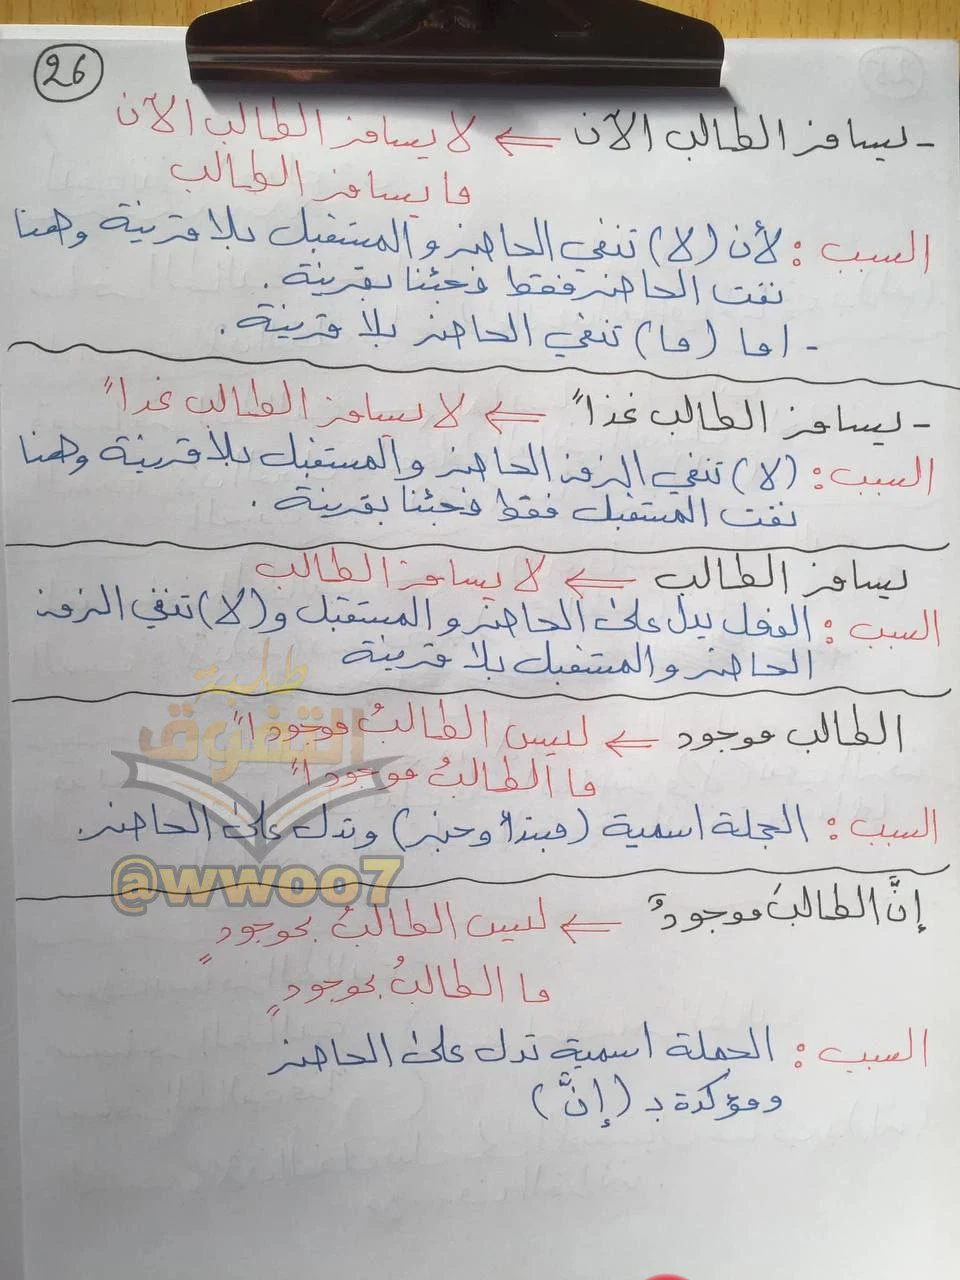 26
- يسافر الطالب الآن ⇐ لا يسافر الطالب الآن
ما يسافر الطالب
السبب : لأن (لا) تنفي الحاضر والمستقبل بلا قرينة وهنا
نفت الحاضر فقط فجئنا بقرينة .
- اما (ما) تنفي الحاضر بلا قرينة .
- يسافر الطالب غداً ⇐ لا يسافر الطالب غداً
السبب : (لا) تنفي الزمن الحاضر والمستقبل بلا قرينة وهنا
نفت المستقبل فقط فجئنا بقرينة .
يسافر الطالب ⇐ لا يسافر الطالب
السبب : الفعل يدل على الحاضر والمستقبل و(لا) تنفي الزمن
الحاضر والمستقبل بلا قرينة
الطالب موجود ⇐ ليس الطالبُ موجوداً
ما الطالبُ موجوداً
السبب : الجملة اسمية (مبتدأ وخبر) وتدل على الحاضر.
إنَّ الطالبَ موجودٌ ⇐ ليس الطالبُ بموجودٍ
ما الطالبُ بموجودٍ
السبب : الجملة اسمية تدل على الحاضر
ومؤكدة بـ (إنَّ)
طلبة
التفوق
@wwoo7